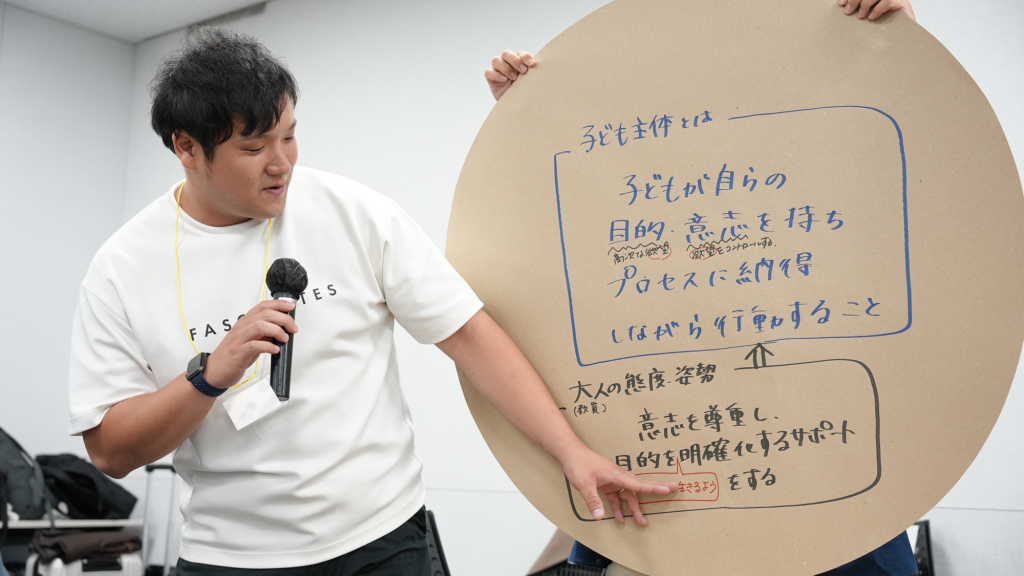 子ども主体とは
子どもが自らの
目的・意志を持ち
高次な欲望 欲望をコントロールする。
プロセスに納得
しながら行動すること
大人の態度・姿勢
(教員)
意志を尊重し、
目的を明確化するサポート
生きるよう をする
FASC TES